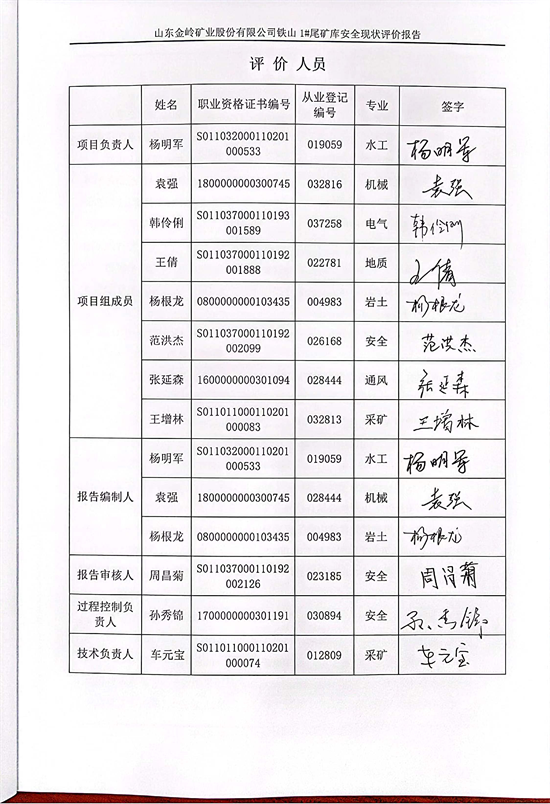 山东金岭矿业股份有限公司铁山 1#尾矿库安全现状评价报告
评 价 人员
姓名 职业资格证书编号 从业登记编号 专业 签字
项目负责人 杨明军 S011032000110201000533 019059 水工 杨明军
项目组成员 袁强 1800000000300745 032816 机械 袁强
韩伶俐 S011037000110193001589 037258 电气 韩伶俐
王倩 S011037000110192001888 022781 地质 王倩
杨根龙 0800000000103435 004983 岩土 杨根龙
范洪杰 S011037000110192002099 026168 安全 范洪杰
张延森 1600000000301094 028444 通风 张延森
王增林 S011011000110201000083 032813 采矿 王增林
报告编制人 杨明军 S011032000110201000533 019059 水工 杨明军
袁强 1800000000300745 028444 机械 袁强
杨根龙 0800000000103435 004983 岩土 杨根龙
报告审核人 周昌菊 S011037000110192002126 023185 安全 周昌菊
过程控制负责人 孙秀锦 1700000000301191 030894 安全 孙秀锦
技术负责人 车元宝 S011011000110201000074 012809 采矿 车元宝